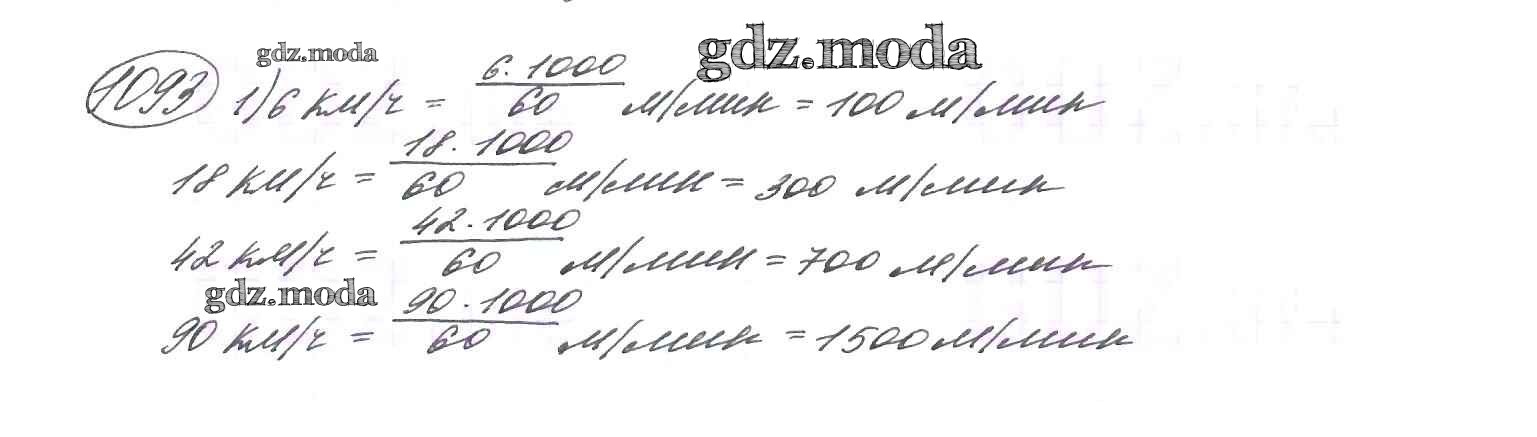 gdz.moda gdz.moda
1093 1) 6 км/ч = 6·1000/60 м/мин = 100 м/мин
18 км/ч = 18·1000/60 м/мин = 300 м/мин
42 км/ч = 42·1000/60 м/мин = 700 м/мин
gdz.moda
90 км/ч = 90·1000/60 м/мин = 1500 м/мин